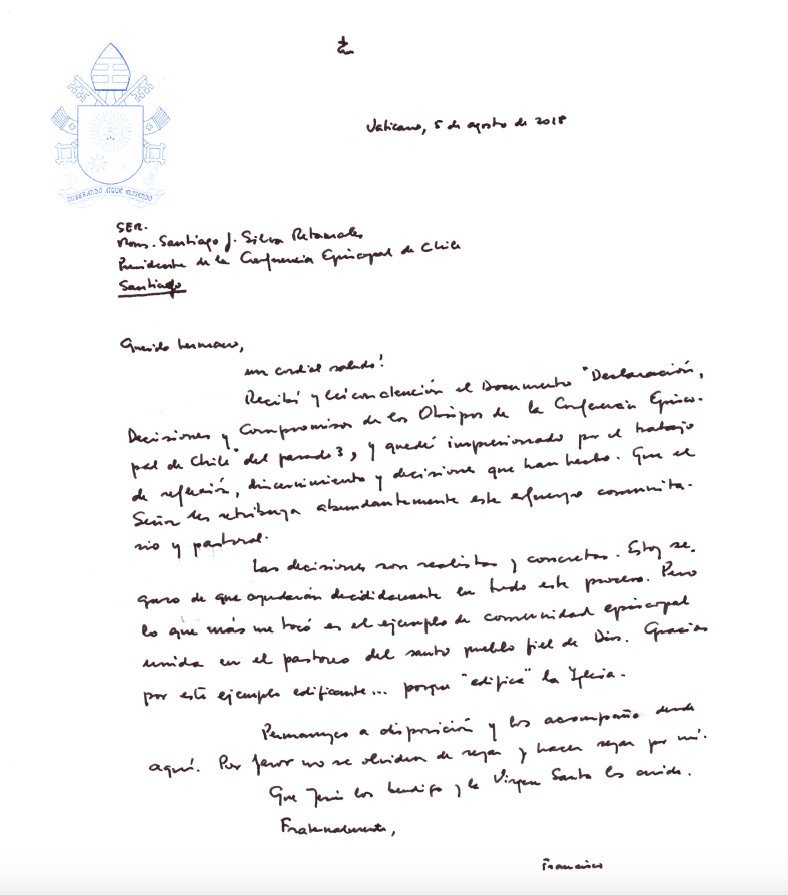 MISERANDO ATQUE ELIGENDO
Vaticano, 5 de agosto de 2018
S.E.R.
Mons. Santiago J. Silva Retamales
Presidente de la Conferencia Episcopal de Chile
Santiago
Querido hermano,
un cordial saludo!
Recibí y leí con atención el Documento "Declaración,
Decisiones y Compromisos de los Obispos de la Conferencia Episco-
pal de Chile" del pasado 3, y quedé impresionado por el trabajo
de reflexión, discernimiento y decisiones que han hecho. Que el
Señor les retribuya abundantemente este esfuerzo comunita-
rio y pastoral.
Las decisiones son realistas y concretas. Estoy se-
guro de que ayudarán decididamente en todo este proceso. Pero
lo que más me tocó es el ejemplo de comunidad episcopal
unida en el pastoreo del santo pueblo fiel de Dios. Gracias
por este ejemplo edificante... porque "edifica" la Iglesia.
Permanezco a disposición y los acompaño desde
aquí. Por favor no se olviden de rezar y hacer rezar por mí.
Que Jesús los bendiga y la Virgen Santa los cuide.
Fraternalmente,
Francisco